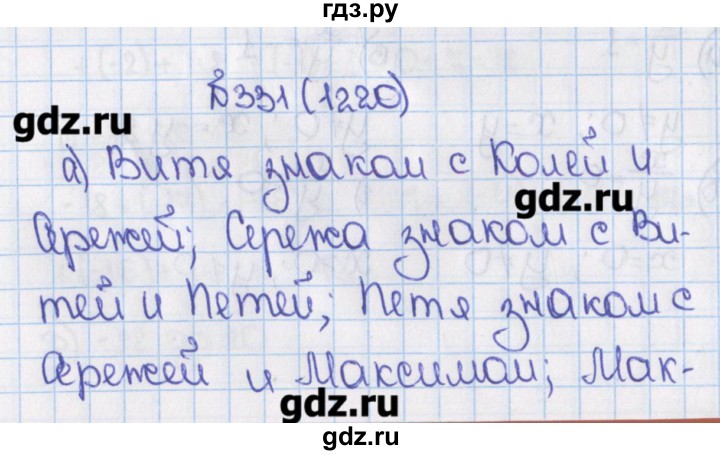 гдз.ру
№331 (1220)
gdz.ru
а) Витя знаком с Колей и
gdz.ru
Сережей; Сережа знаком с Ви-
тей и Петей; Петя знаком с
Сережей и Максимом; Мак-
gdz.ru
gdz.ru